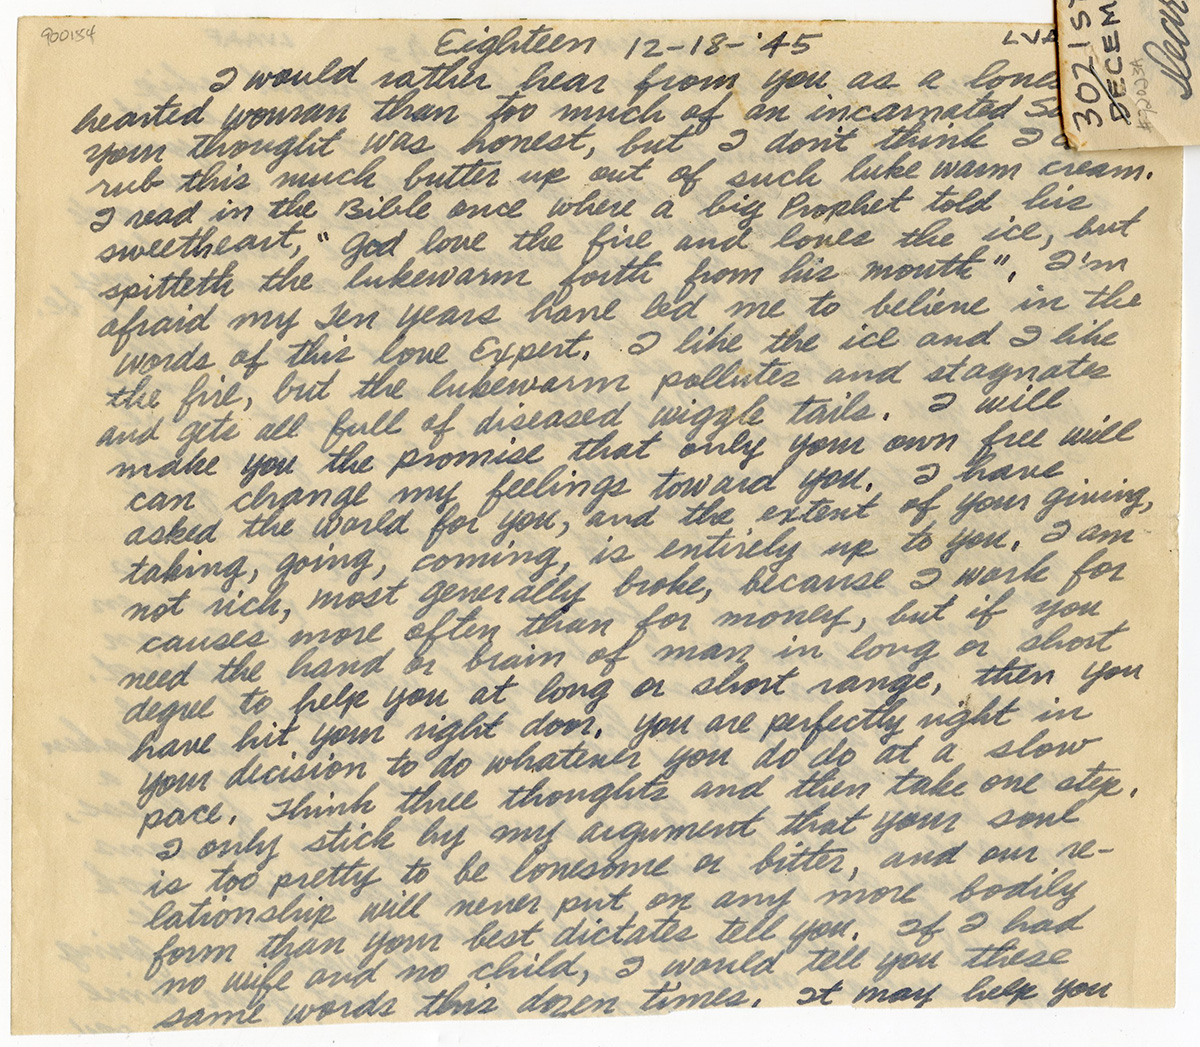 900154
Eighteen 12-18-'45
LVA
3021ST
DECEM
#92023A
Dear
I would rather hear from you as a lone
hearted woman than too much of an incarnated
your thought was honest, but I don't think I
rub this much butter up out of such luke warm cream.
I read in the Bible once where a big Prophet told his
sweetheart, "God love the fire and loves the ice, but
spitteth the lukewarm forth from his mouth". I'm
afraid my Ten years have led me to believe in the
words of this love Expert. I like the ice and I like
the fire, but the lukewarm pollutes and stagnates
and gets all full of diseased wiggle tails. I will
make you the promise that only your own free will
can change my feelings toward you. I have
asked the world for you, and the extent of your giving,
taking, going, coming, is entirely up to you. I am
not rich, most generally broke, because I work for
causes more often than for money, but if you
need the hand or brain of man in long or short
degree to help you at long or short range, then you
have hit your right door. You are perfectly right in
your dicision to do whatever you do do at a slow
pace. Think three thoughts and then take one step.
I only stick by my argument that your soul
is too pretty to be lonesome or bitter, and our re-
lationship will never put on any more bodily
form than your best dictates tell you. If I had
no wife and no child, I would tell you these
same words this dozen times. It may help you